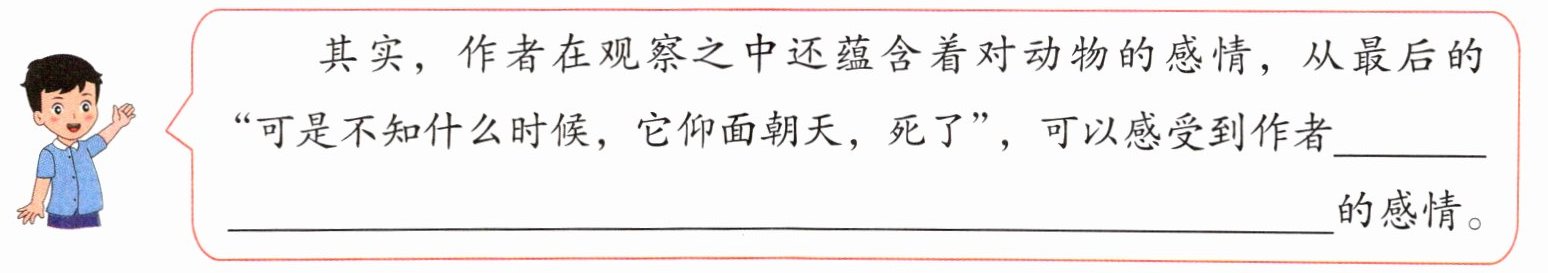 其实，作者在观察之中还蕴含着对动物的感情，从最后的
“可是不知什么时候，它仰面朝天，死了”，可以感受到作者________
________________________________________________的感情。